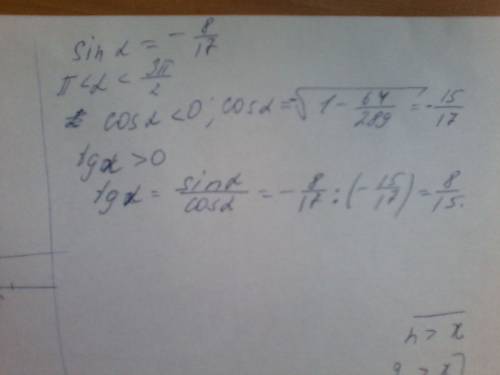 sin α = - 8/17
π < α < 3π/2
cos α < 0; cos α = -√(1 - 64/289) = - 15/17
tg α > 0
tg α = sin α / cos α = - 8/17 : (- 15/17) = 8/15.